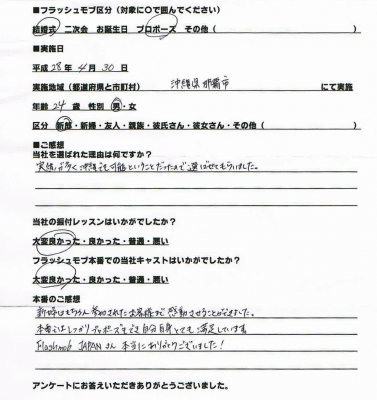 ■フラッシュモブ区分（対象に○で囲んでください）
結婚式 二次会 お誕生日 プロポーズ その他（ ）
■実施日
平成 28年 4月 30日
実施地域（都道府県と市町村） 沖縄県那覇市 にて実施
年齢 24歳 性別 男・女
区分 新郎・新婦・友人・親族・彼氏さん・彼女さん・その他（ ）
■ご感想
当社を選ばれた理由は何ですか？
実績が多く沖縄でも可能ということだったので選ばせてもらいました。
当社の振付レッスンはいかがでしたか？
大変良かった・良かった・普通・悪い
フラッシュモブ本番での当社キャストはいかがでしたか？
大変良かった・良かった・普通・悪い
本番のご感想
新婦はもちろん参加されたお客様まで感動させることができました。
本番ではしっかりプロポーズもでき自分自身とても満足しています。
Flashmob JAPANさん本当にありがとうございました！
アンケートにお答えいただきありがとうございました。